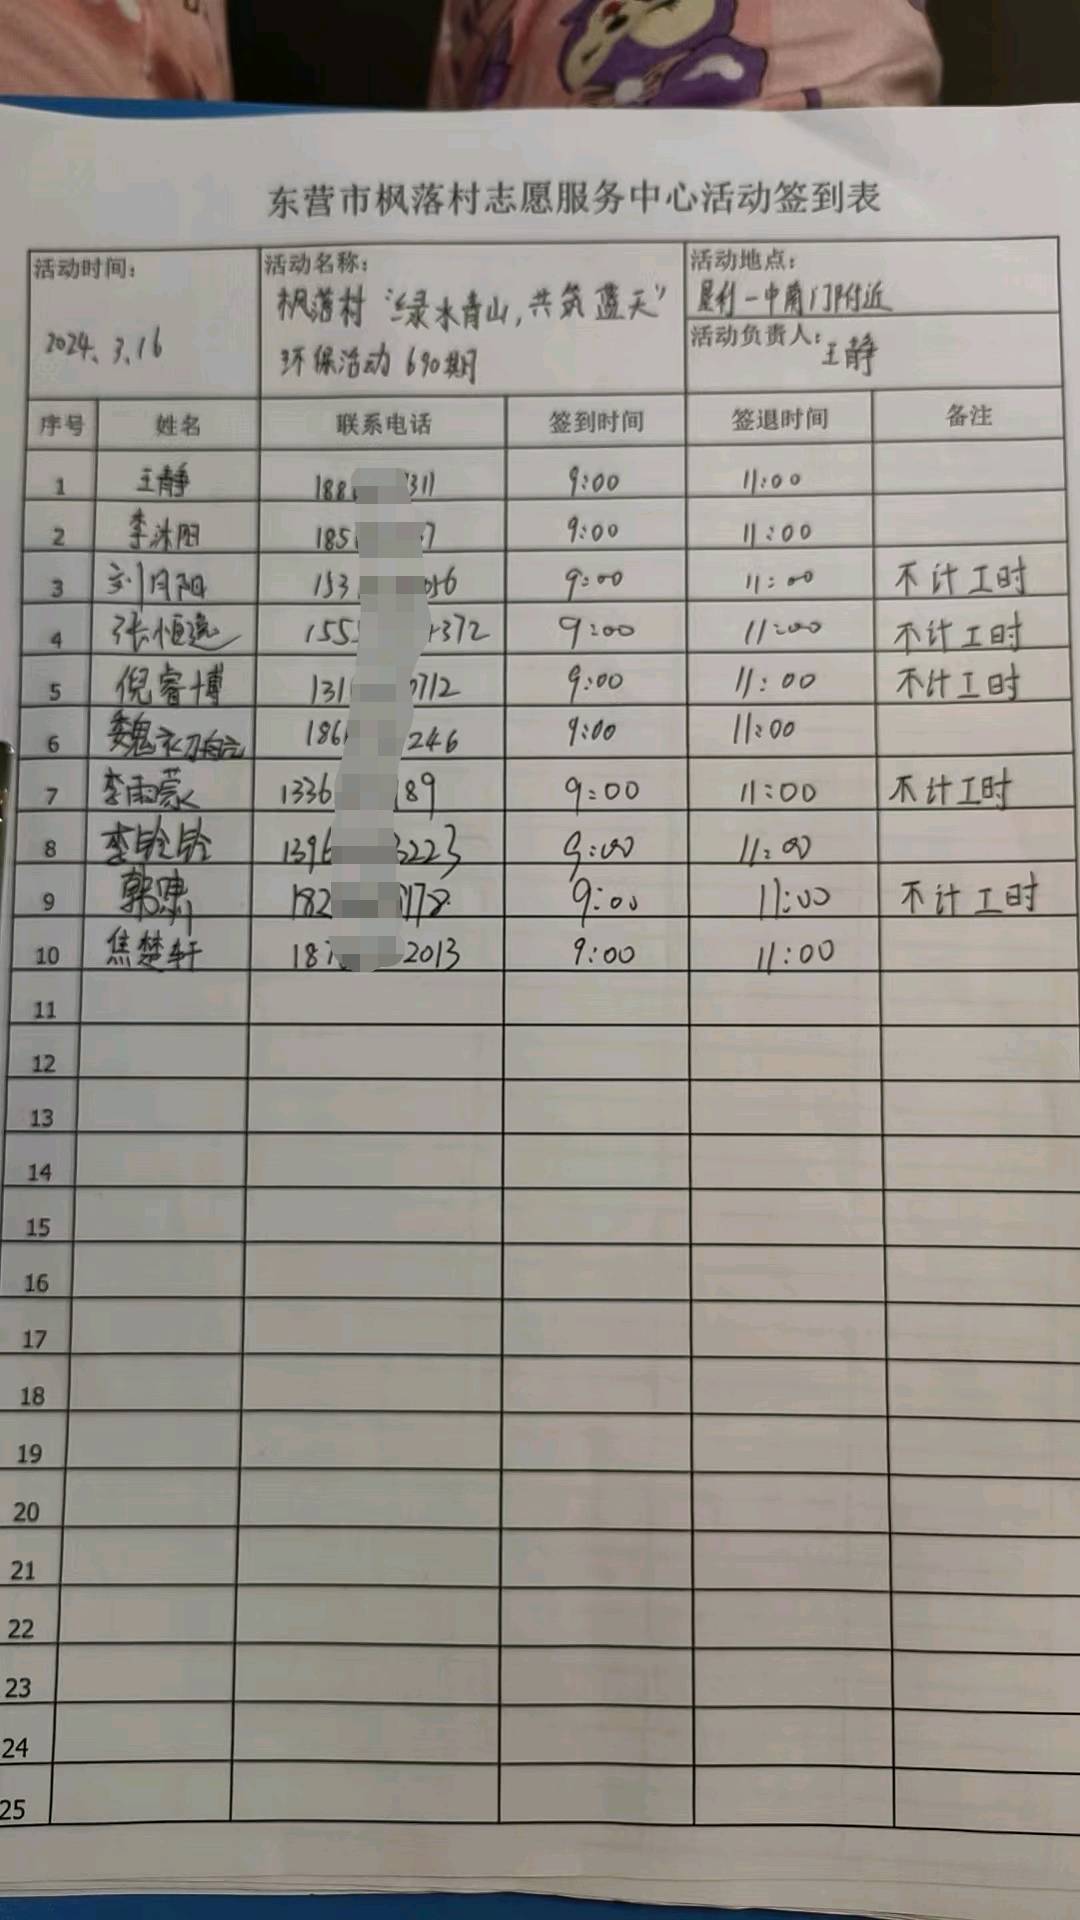 东营市枫落村志愿服务中心活动签到表
活动时间： 活动名称： 活动地点：
枫落村“绿水青山，共筑蓝天” 垦利一中南门附近
2024.3.16 环保活动690期 活动负责人：王静
序号 姓名 联系电话 签到时间 签退时间 备注
1 王静 188 311 9:00 11:00
2 李沐阳 185 7 9:00 11:00
3 刘月阳 153 056 9:00 11:00 不计工时
4 张恒逸 155 372 9:00 11:00 不计工时
5 倪睿博 131 0712 9:00 11:00 不计工时
6 魏 186 246 9:00 11:00
7 李雨蒙 1336 189 9:00 11:00 不计工时
8 李 1396 3223 9:00 11:00
9 韩啸 182 178 9:00 11:00 不计工时
10 焦楚轩 187 2013 9:00 11:00
11
12
13
14
15
16
17
18
19
20
21
22
23
24
25